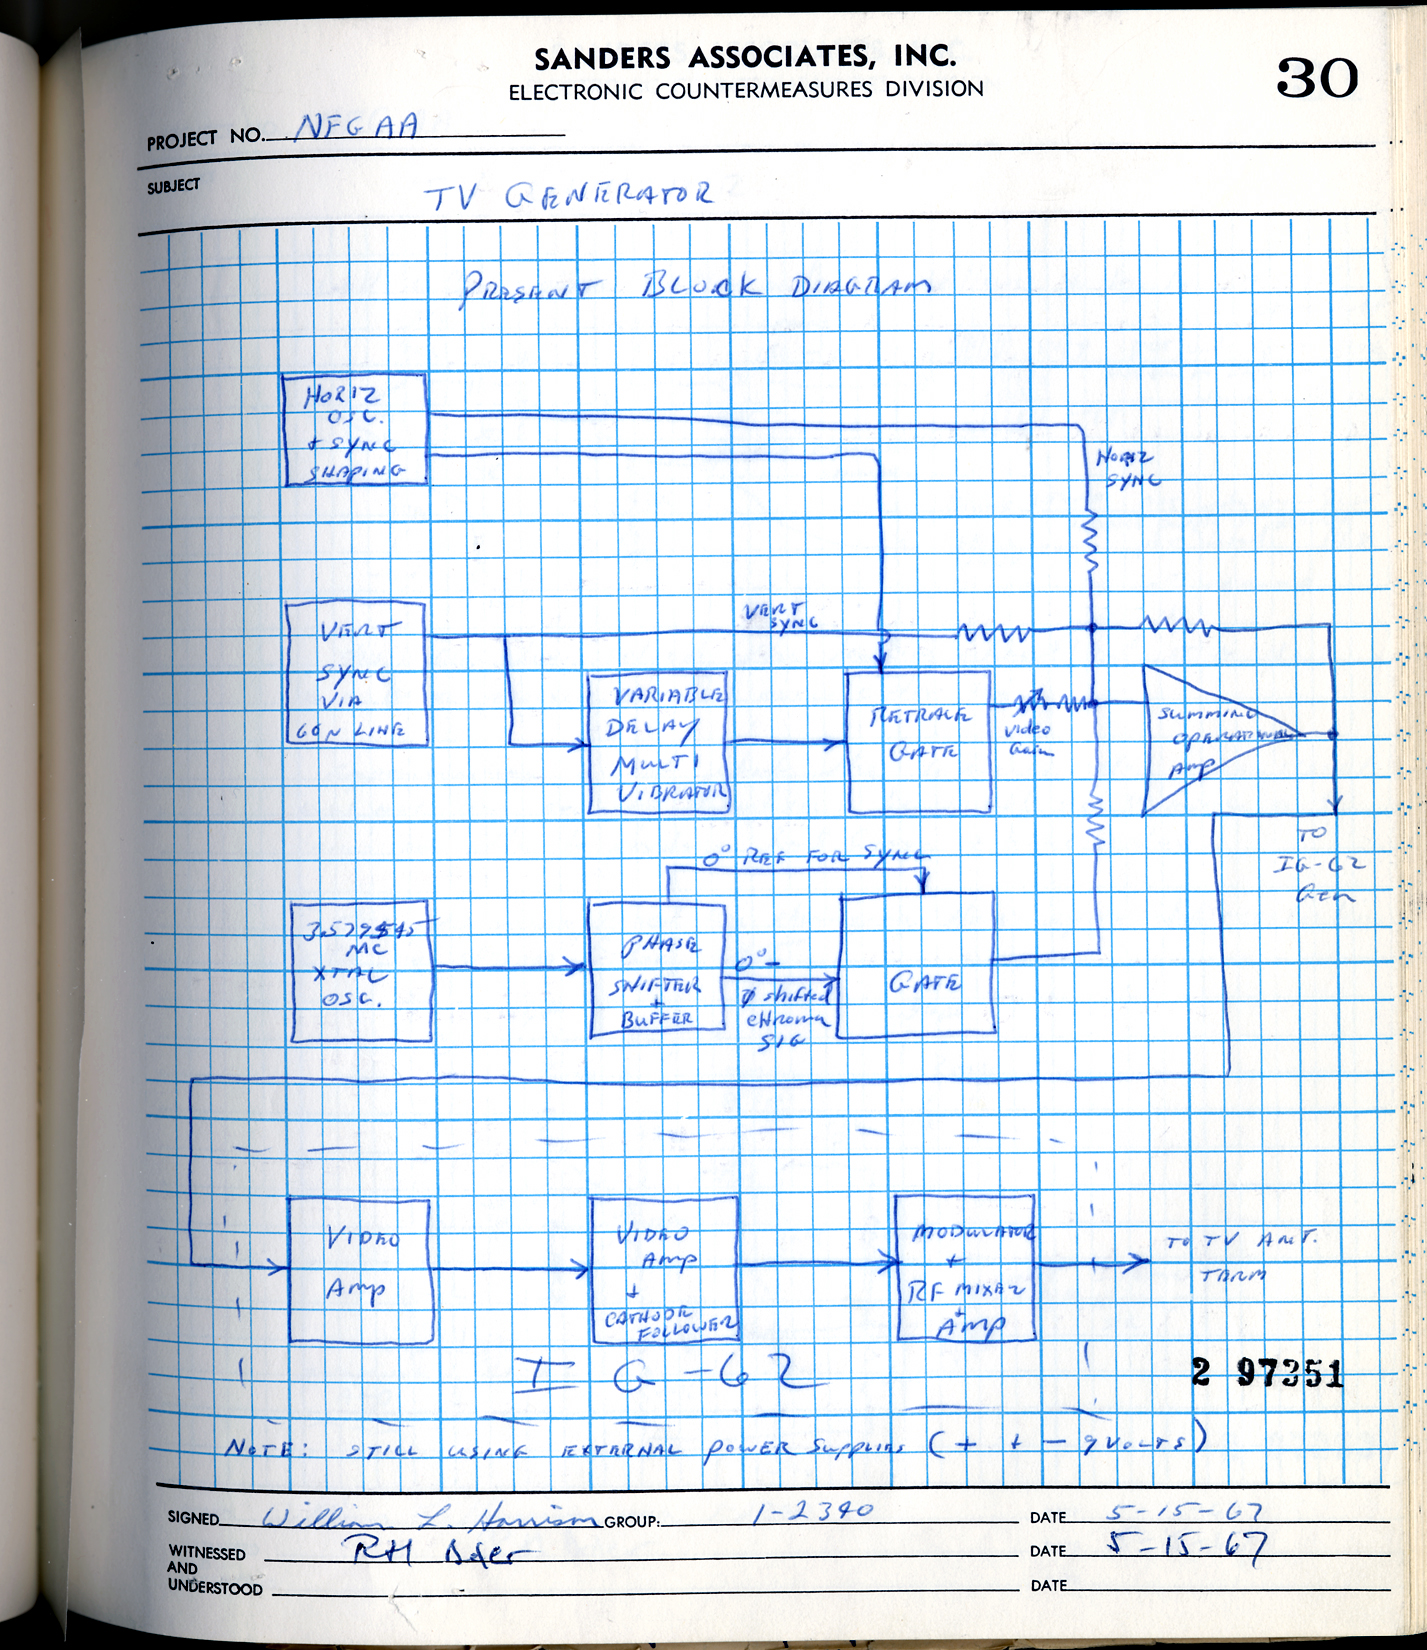 SANDERS ASSOCIATES, INC.
ELECTRONIC COUNTERMEASURES DIVISION
30
PROJECT NO. NFGAA
SUBJECT
TV GENERATOR
PRESENT BLOCK DIAGRAM
HORIZ
OSC.
+ SYNC
SHAPING
HORIZ
SYNC
VERT
SYNC
VERT
SYNC
VIA
60N LINE
VARIABLE
DELAY
MULTI
VIBRATOR
RETRACE
GATE
Video
Gain
SUMMING
OPERATIONAL
Amp
TO
IG-62
Gen
0° REF FOR SYNC
3.579545
MC
XTAL
OSC.
PHASE
SHIFTER
+
BUFFER
0°-
Ø shifted
CHroma
SIG
GATE
VIDEO
Amp
VIDEO
Amp
+
CATHODE
FOLLOWER
MODULATOR
+
RF MIXER
+
AMP
TO TV ANT.
TERM
IG-62
2 97351
NOTE: STILL USING EXTERNAL POWER SUPPLIES (+ + - 9 VOLTS)
SIGNED William L. Harrison GROUP: 1-2340 DATE 5-15-67
WITNESSED RH Baer DATE 5-15-67
AND
UNDERSTOOD DATE